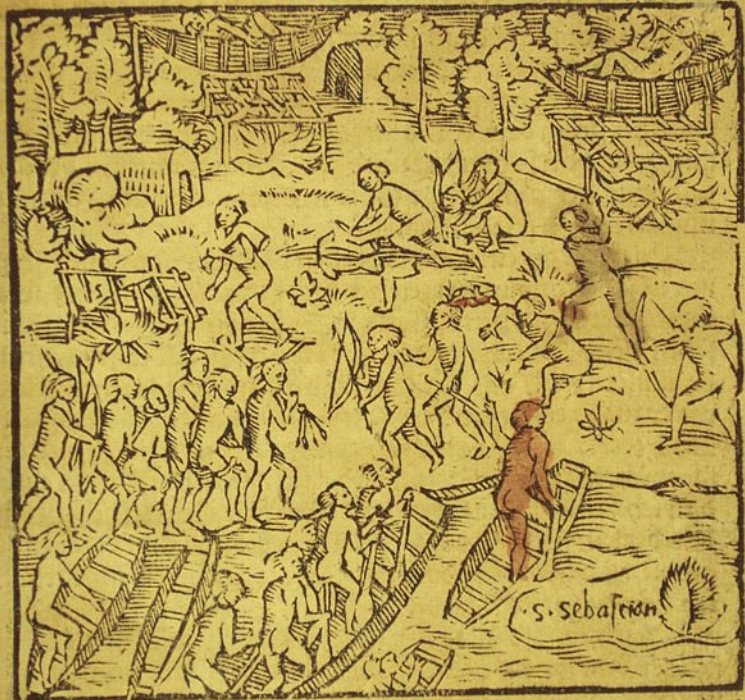 ·s·sebaſtian